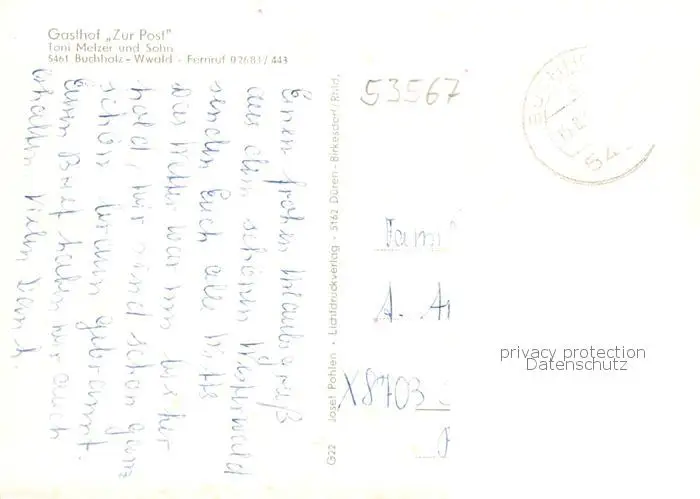 Gasthof „Zur Post"
Toni Melzer und Sohn
5461 Buchholz-Wwald - Fernruf 02683/443
Einen frohen Urlaubsgruß
aus dem schönen Westerwald
senden Euch alle
das Wetter war nun bisher
hold, wir sind schon ganz
schön braun gebrannt.
Euren Brief haben wir auch
erhalten Vielen Dank.
G22 Josef Pohlen - Lichtdruckverlag - 5162 Düren-Birkesdorf/Rhld.
53567
54
Fami
A. Ar
X8703
privacy protection
Datenschutz